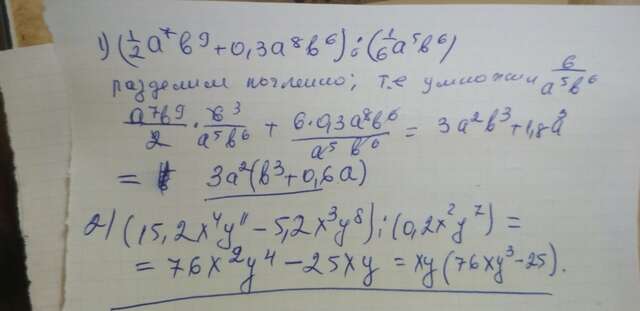 1) (1/2 a⁷b⁹ + 0,3a⁸b⁶) : (1/6 a⁵b⁶)
разделим почленно; т.е умножим 6/a⁵b⁶
a⁷b⁹/2 · 6³/a⁵b⁶ + 6·0,3a⁸b⁶/a⁵b⁶ = 3a²b³ + 1,8a³
= 3a²(b³ + 0,6a)
2) (15,2x⁴y¹¹ − 5,2x³y⁸) : (0,2x²y⁷) =
= 76x²y⁴ − 25xy = xy(76xy³ − 25).